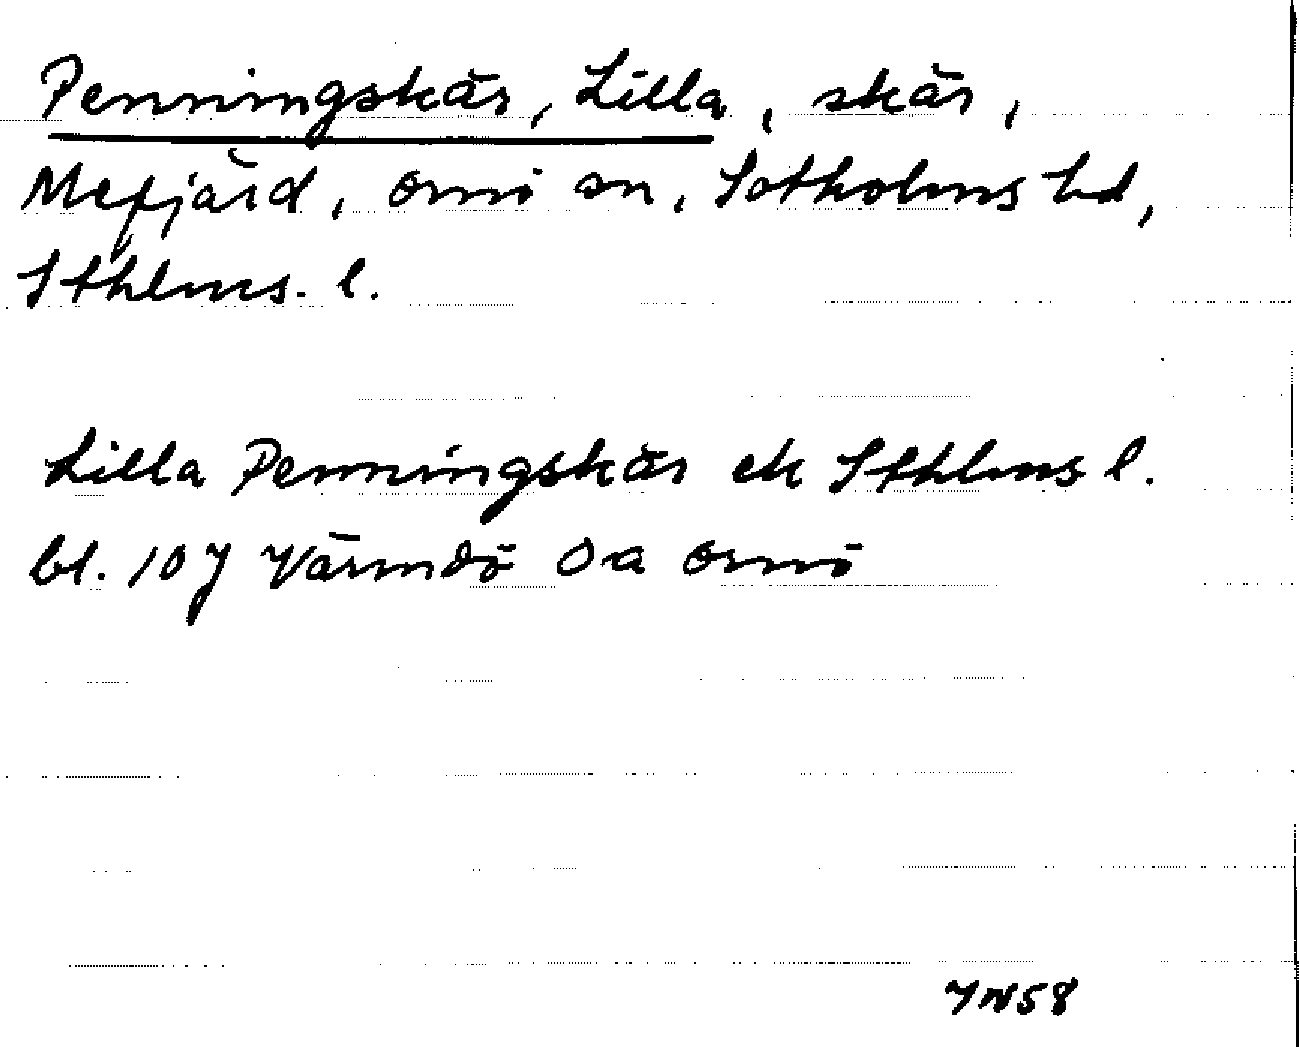 Penningskär, Lilla, skär,
Mefjärd, Ornö sn, Sotholms hd,
Sthlms. l.
Lilla Penningskär ek Sthlms l.
bl. 107 Värmdö Oa Ornö
YN58